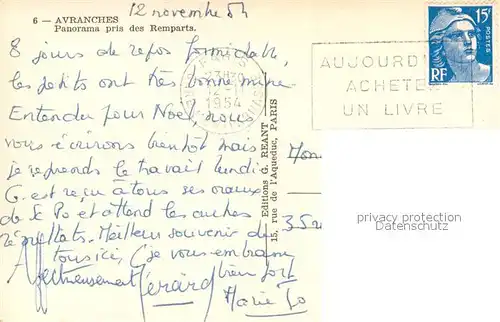 12 novembre 54
6 — AVRANCHES
Panorama pris des Remparts.
8 jours de repos formidable,
les petits ont très bonne mine
Entendu pour Noël, nous
vous écrirons bientôt mais
je reprends le travail lundi
G. est reçu à tous ses oraux
de Sc Po et attend les autres
résultats. Meilleur souvenir de
tous ici, je vous embrasse
bien fort
Affectueusement Gérard
Marie Jo
15F
POSTES
RF
AUJOURD'
ACHETE
UN LIVRE
12 - 11
1954
Editions G. REANT
15, rue de l'Aqueduc, PARIS
privacy protection
Datenschutz